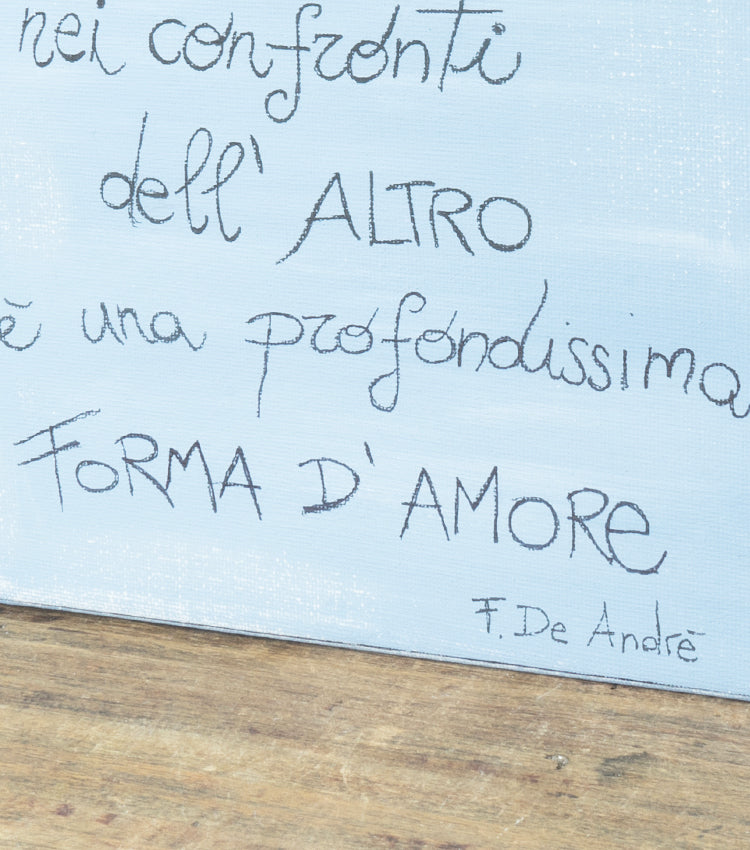 nei confronti
dell' ALTRO
è una profondissima
FORMA D'AMORE
F. De Andrè